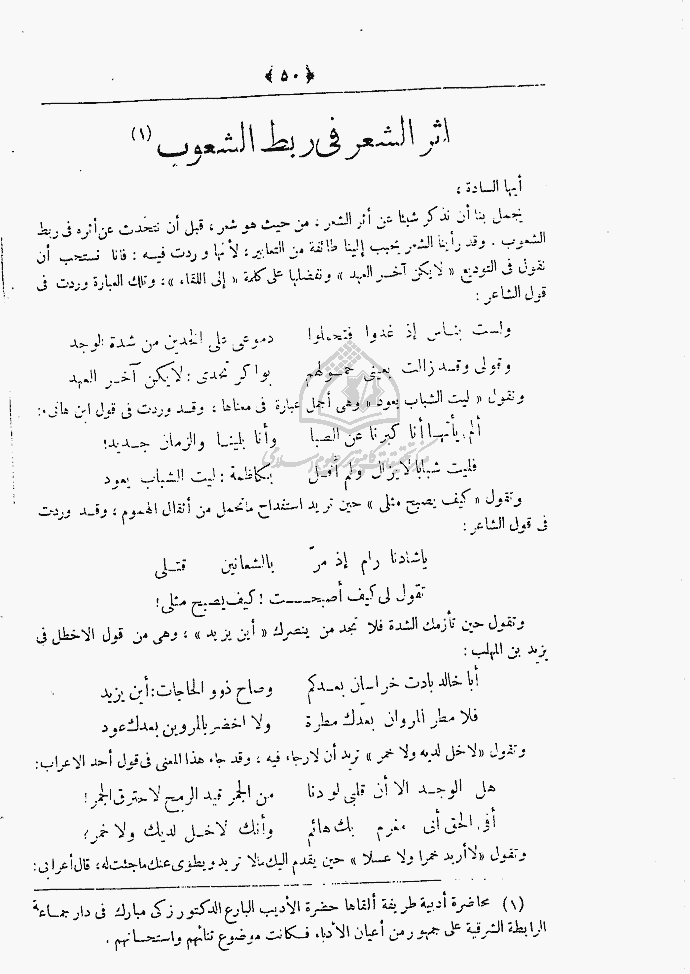 ﴿ ٥٠ ﴾
اثر الشعر فى ربط الشعوب (١)
أيها السادة ؛
يجمل بنا أن نذكر شيئا عن أثر الشعر ، من حيث هو شعر ، قبل أن نتحدث عن أثره فى ربط
الشعوب . وقد رأينا الشعر يحبب إلينا طائفة من التعابير ، لأنها وردت فيه : فانا نستحب أن
نقول فى التوديع « لا يكن آخر العهد » ونفضلها على كلمة « إلى اللقاء » ، وتلك العبارة وردت فى
قول الشاعر :
ولست بناس إذ غدوا فتحملوا دموعى على الخدين من شدة الوجد
وقولى وقد زالت بعينى حمولهم بواكر تحدى : لا يكن آخر العهد
ونقول « ليت الشباب يعود » وهى أجمل عبارة فى معناها ، وقد وردت فى قول ابن هانىء :
ألم يأتها أنا كبرنا عن الصبا وأنا بلينا والزمان جديد !
فليت شبابا لا يزال ولم أقل بكاظمة : ليت الشباب يعود
وتقول « كيف يصبح مثلى » حين تريد استفداح ما تحمل من أثقال الهموم ، وقد وردت
فى قول الشاعر :
يا شادنا رام إذ مرّ بالشعانين قتلى
تقول لى كيف أصبحت ! كيف يصبح مثلى !
وتقول حين تأزمك الشدة فلا تجد من ينصرك « أين يزيد » ، وهى من قول الاخطل فى
يزيد بن المهلب :
أبا خالد بادت خراسان بعدكم وصاح ذوو الحاجات : أين يزيد
فلا مطر المروان بعدك مطرة ولا اخضر بالمروين بعدك عود
وتقول « لا خل لديه ولا خمر » تريد أن لا رجاء فيه ، وقد جاء هذا المعنى فى قول أحد الاعراب :
هل الوجد الا أن قلبى لو دنا من الجمر قيد الرمح لاحترق الجمر !
أفى الحق أنى مغرم بك هائم وأنك لا خل لديك ولا خمر ؟
وتقول « لا أريد خمرا ولا عسلا » حين يقدم اليك مالا تريد ويطوى عنك ما جئت له ، قال أعرابى :
(١) محاضرة أدبية طريفة ألقاها حضرة الأديب البارع الدكتور زكى مبارك فى دار جماعة
الرابطة الشرقية على جمهور من أعيان الأدباء فكانت موضوع ثنائهم واستحسانهم .